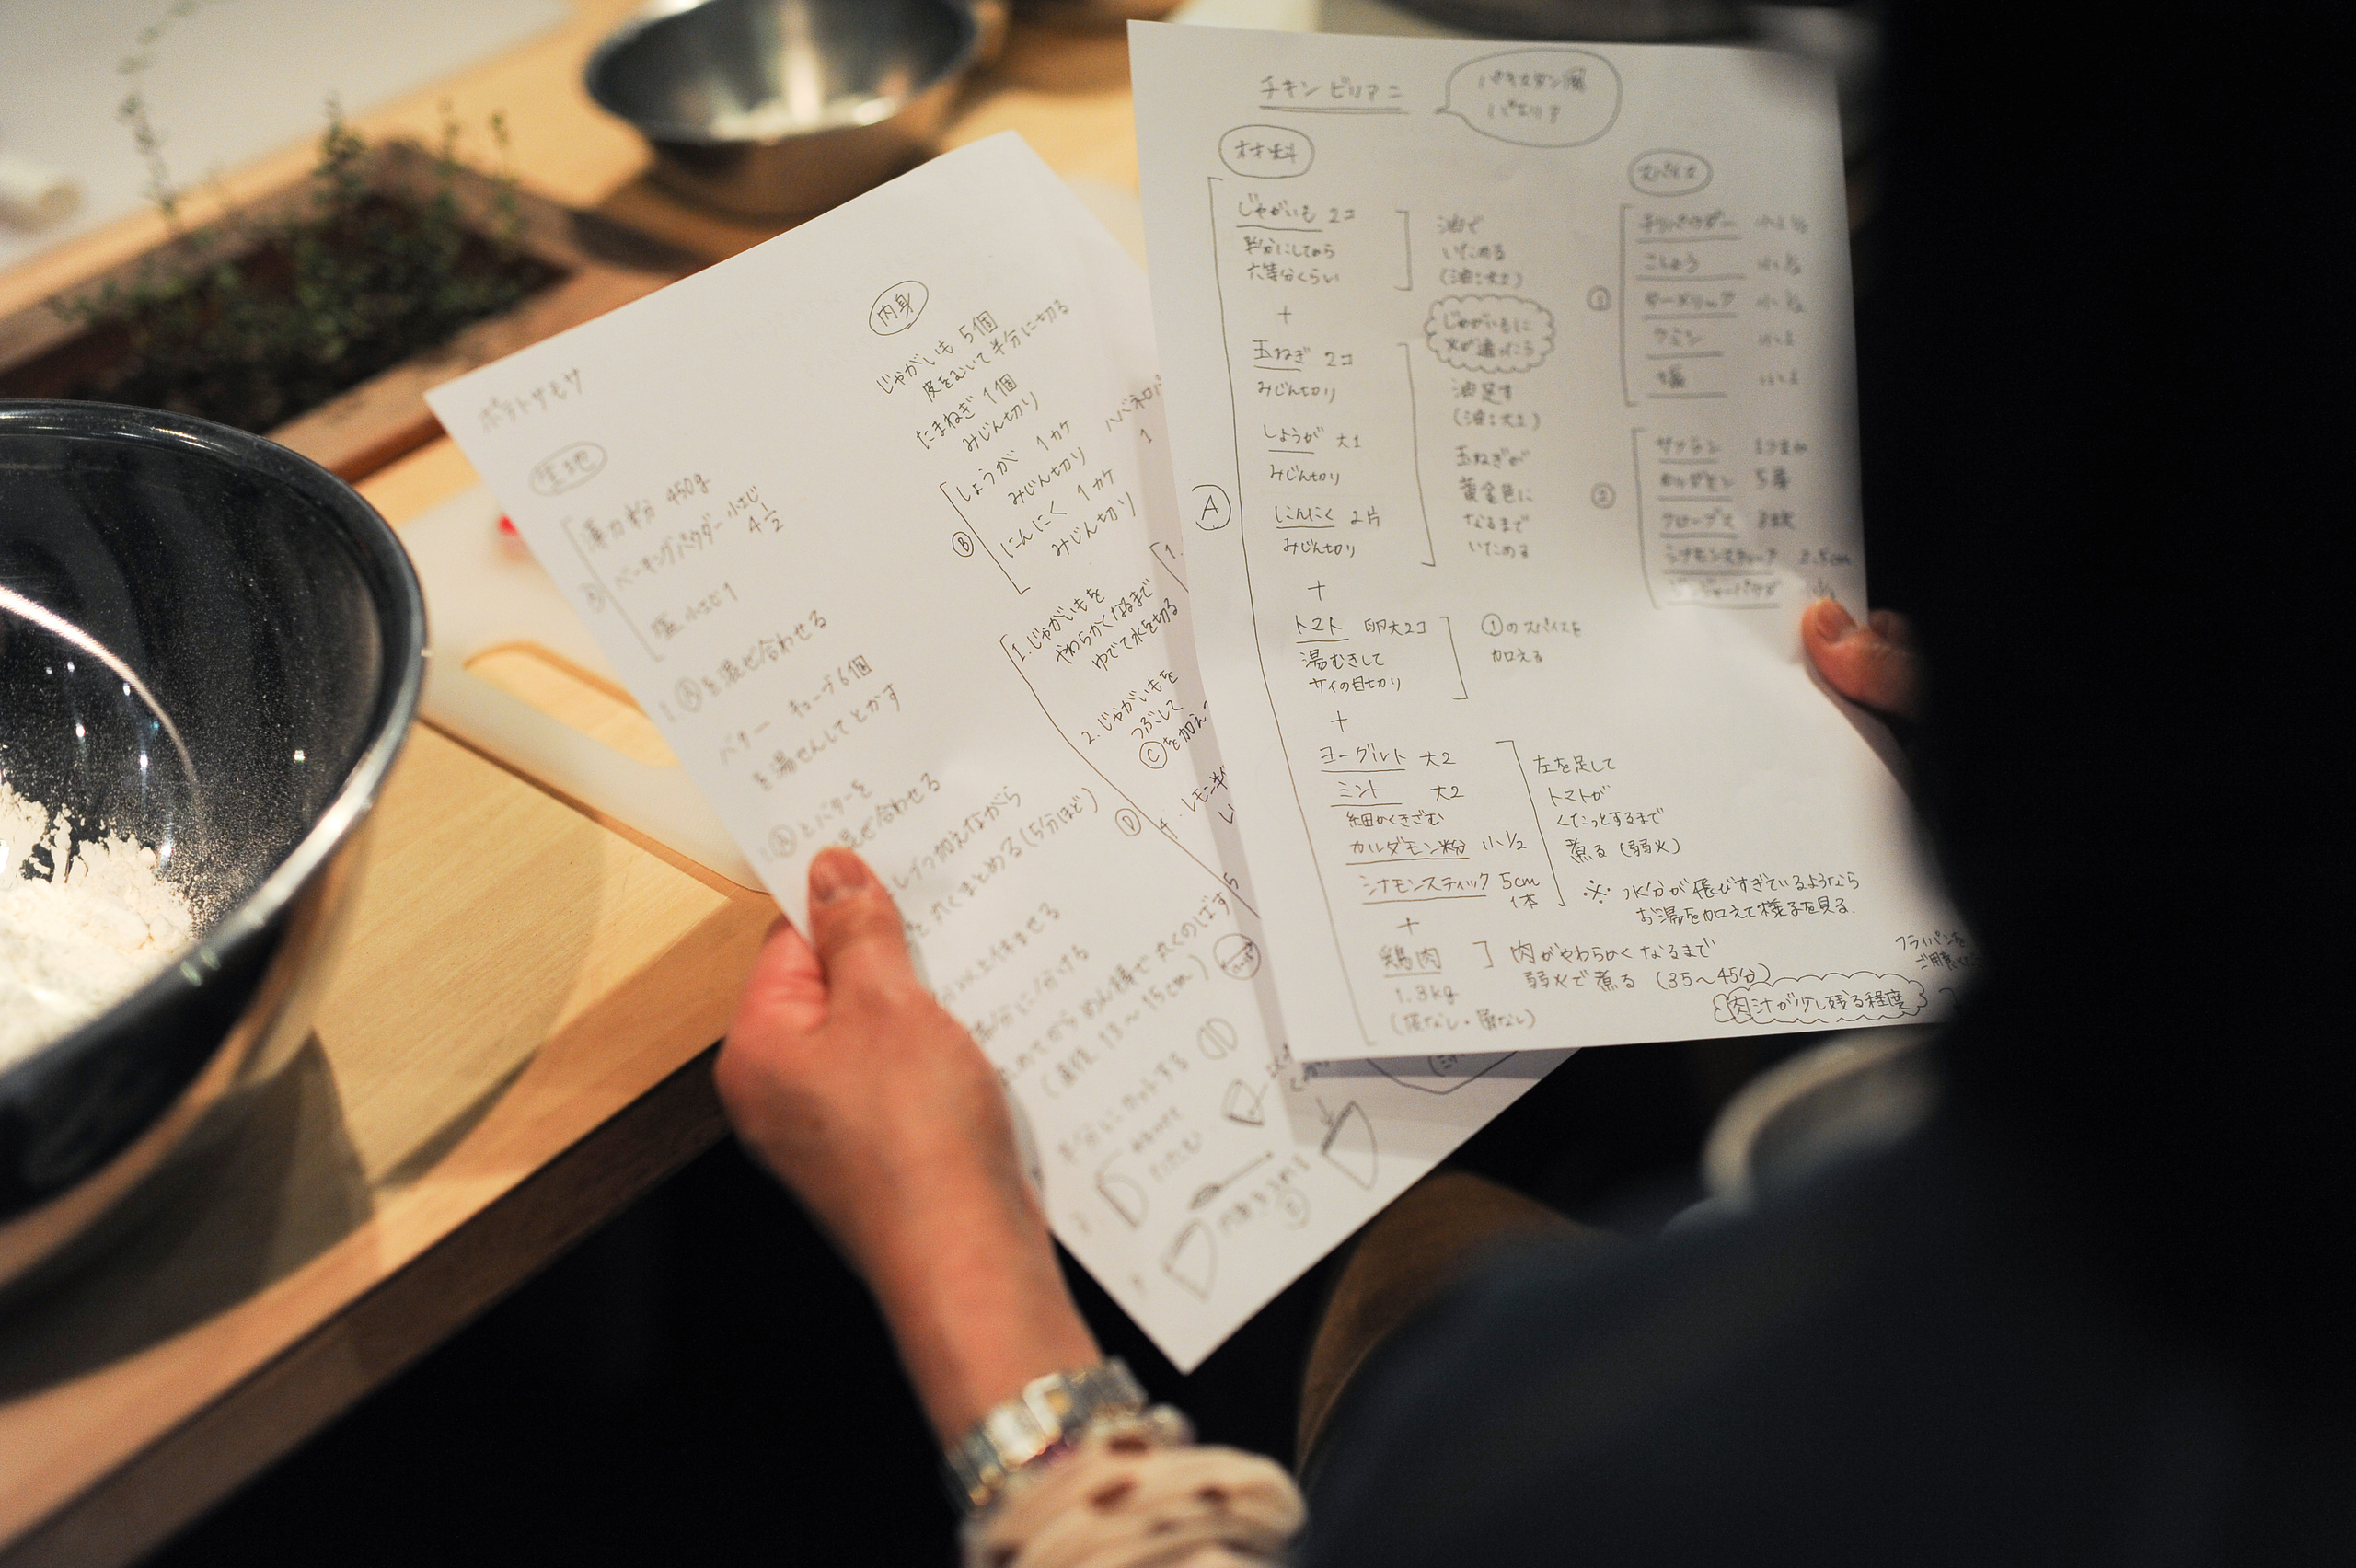 ポテトサモサ
生地
薄力粉 450g
ベーキングパウダー 小さじ
4 1/2
塩 小さじ1
1. Ⓐを混ぜ合わせる
バター キューブ6個
を湯せんしてとかす
Ⓐとバターを
混ぜ合わせる
加えながら
丸くまとめる(5分ほど)
めん棒で丸くのばす
(直径 13〜15cm)
半分にカットする
内身
じゃがいも 5個
皮をむいて半分に切る
たまねぎ 1個
みじん切り
Ⓑ
しょうが 1カケ
みじん切り
にんにく 1カケ
みじん切り
1
1. じゃがいもを
やわらかくなるまで
ゆでて水を切る
2. じゃがいもを
つぶして
Ⓒを加え
Ⓓ
4. レモン
チキンビリアニ
パキスタン風
パエリア
材料
Ⓐ
じゃがいも 2コ
半分にしてから
六等分くらい
油で
いためる
(油:大2)
じゃがいもに
火が通ったら
+
玉ねぎ 2コ
みじん切り
しょうが 大1
みじん切り
にんにく 2片
みじん切り
油足す
(油:大2)
玉ねぎが
黄金色に
なるまで
いためる
+
トマト 卵大2コ
湯むきして
サイの目切り
①のスパイスを
加える
+
ヨーグルト 大2
ミント 大2
細かくきざむ
カルダモン粉 小1/2
シナモンスティック 5cm
1本
左を足して
トマトが
くたっとするまで
煮る(弱火)
※ 水分が飛びすぎているようなら
お湯を加えて様子を見る.
+
鶏肉
1.3kg
(皮なし・骨なし)
肉がやわらかくなるまで
弱火で煮る (35〜45分)
肉汁が少し残る程度
フライパンを
スパイス
①
チリパウダー
こしょう 小1/2
ターメリック 小1/2
クミン
塩
②
サフラン 1つまみ
カルダモン
クローブス
シナモンスティック 2.5cm
ジンジャーパウダ